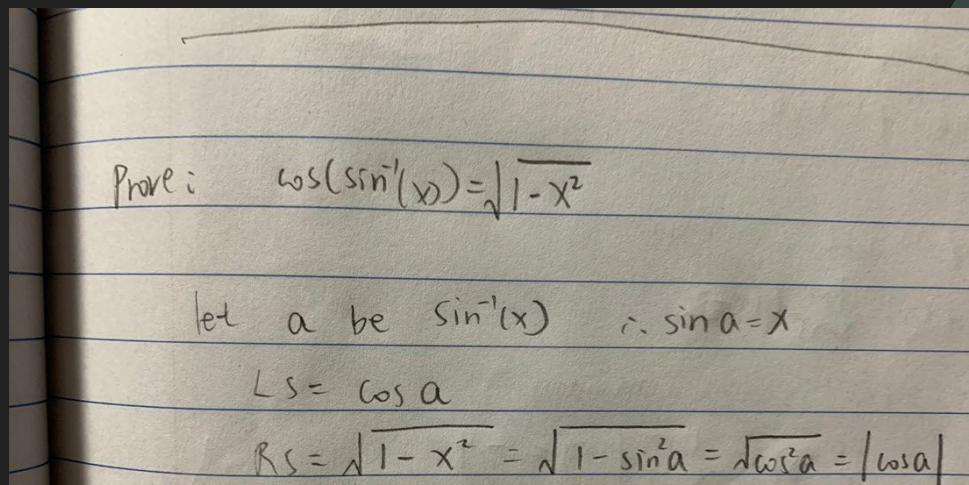 Prove: cos(sin⁻¹(x)) = √(1-x²)
let a be sin⁻¹(x) ∴ sin a = x
LS = cos a
RS = √(1-x²) = √(1-sin²a) = √(cos²a) = |cosa|